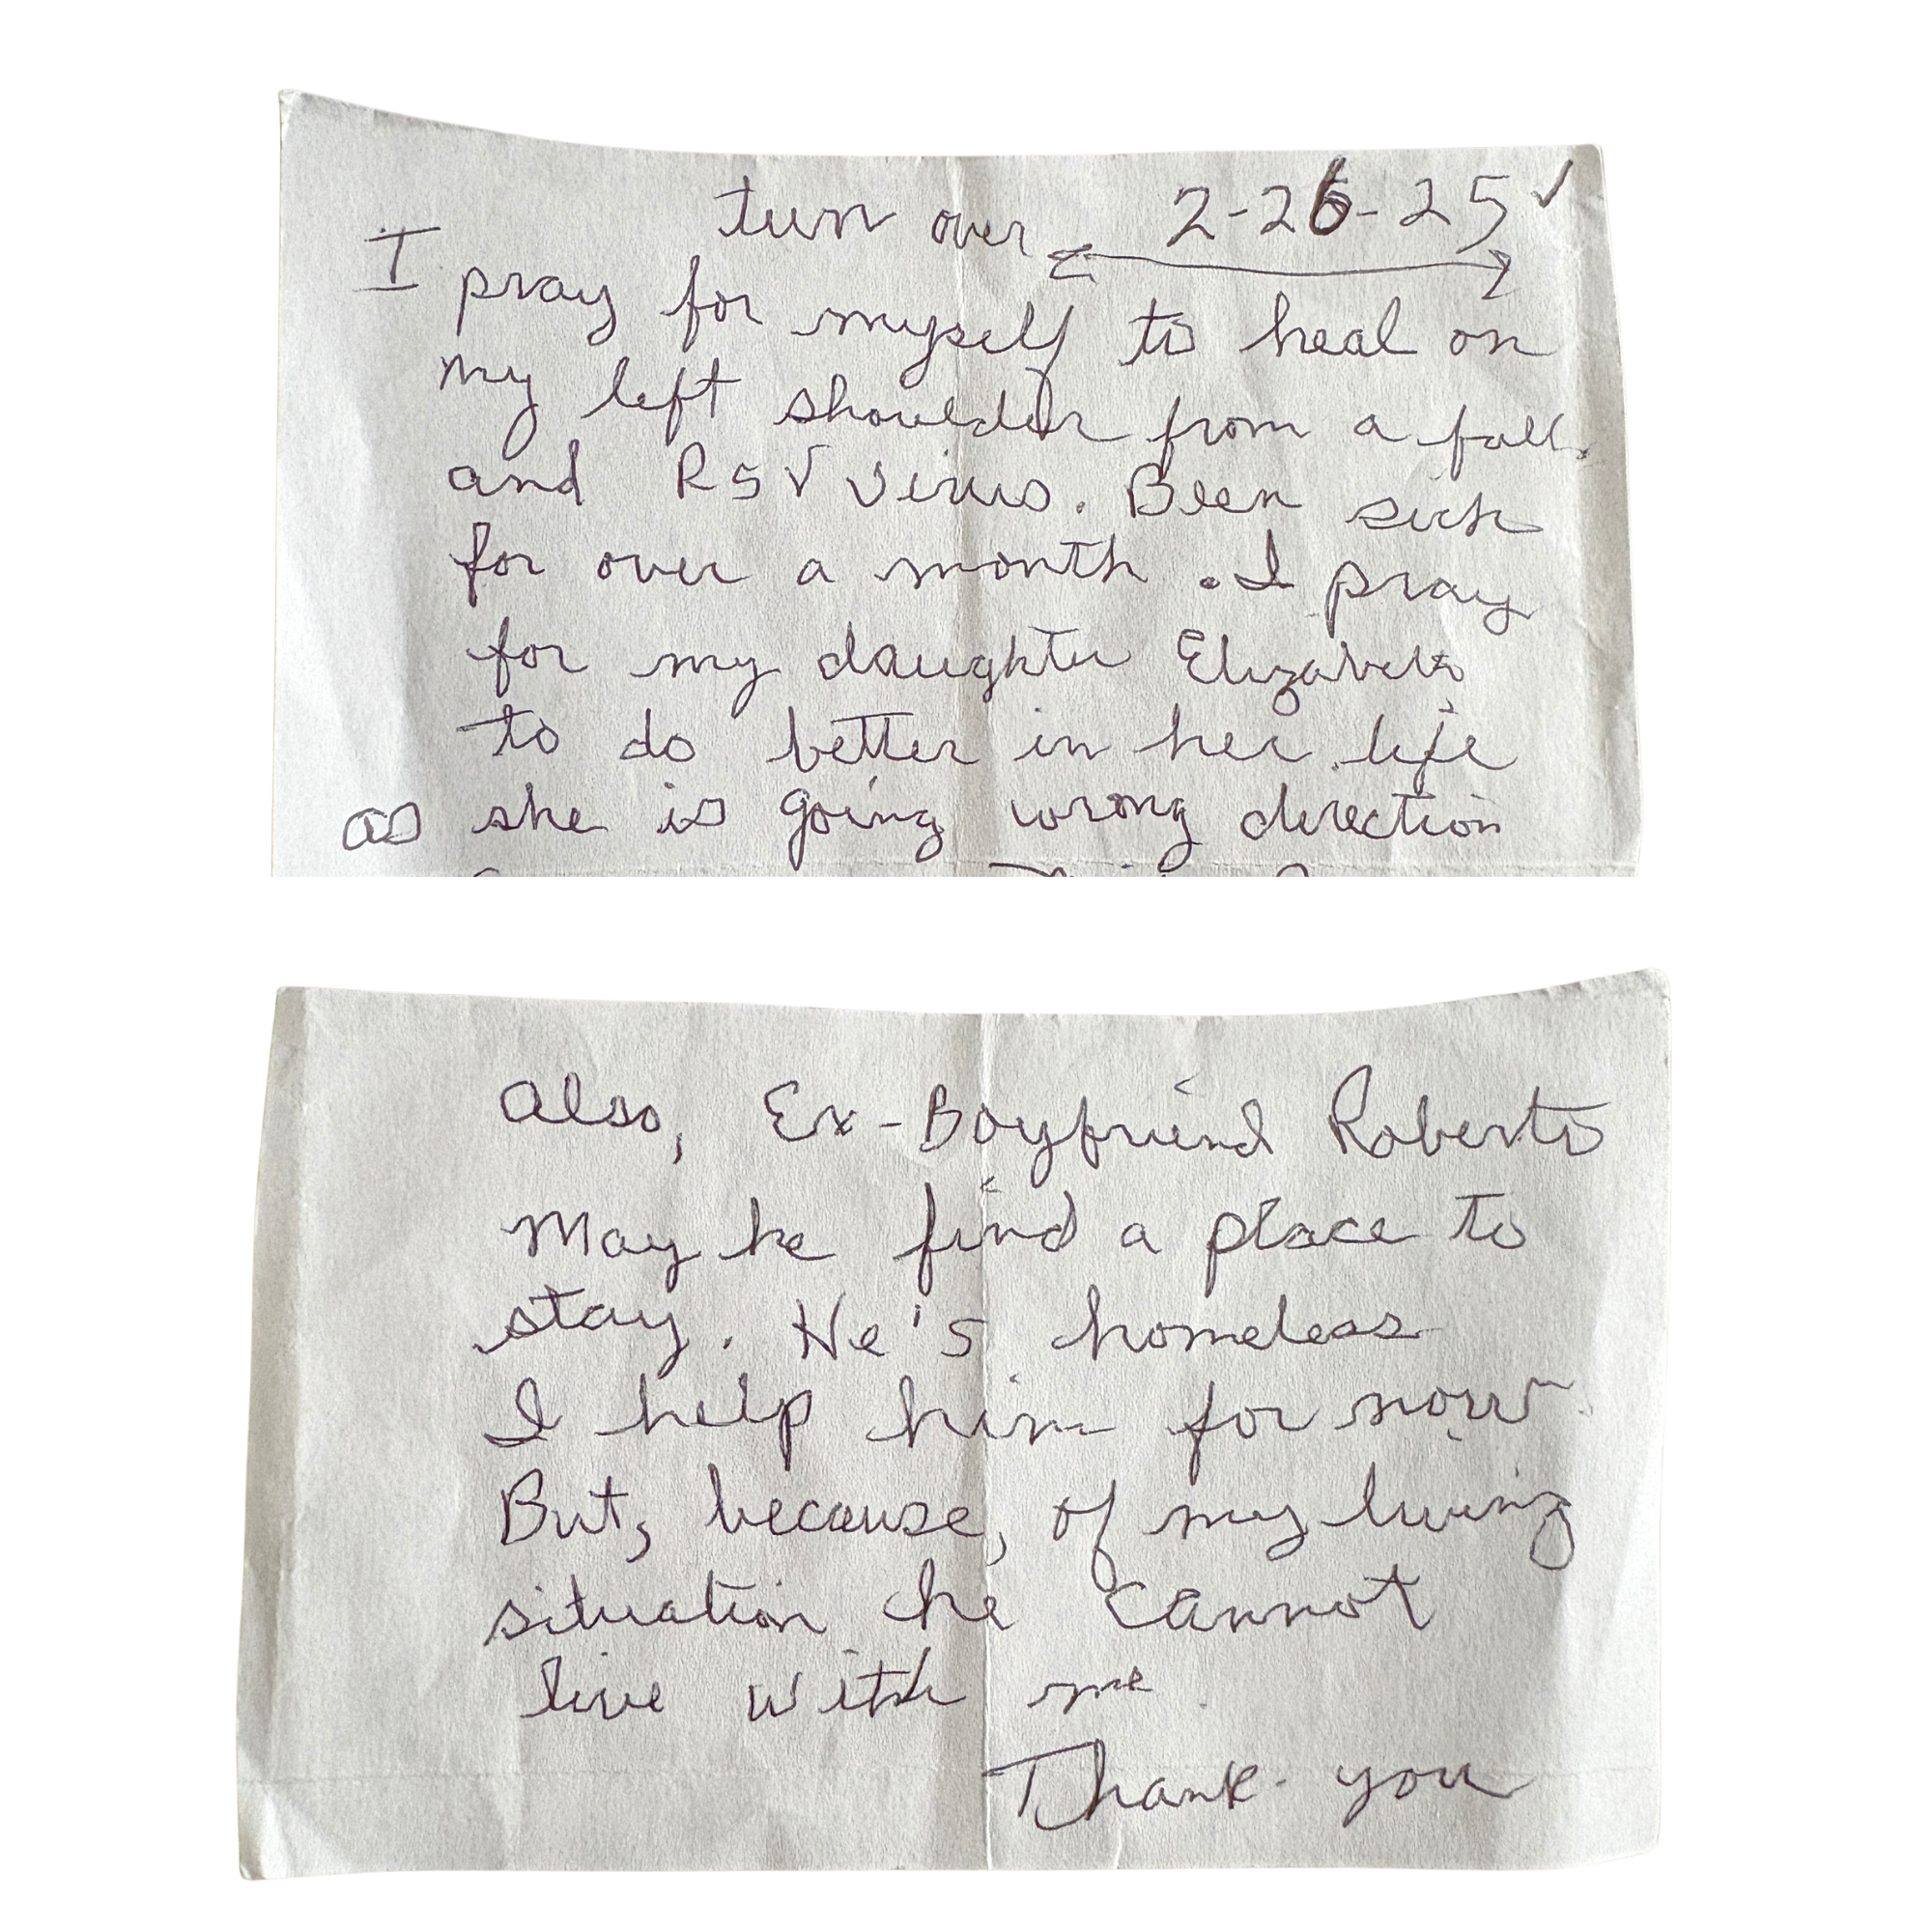 turn over 2-26-25 ✓
I pray for myself to heal on
my left shoulder from a fall.
and RSV virus. Been sick
for over a month. I pray
for my daughter Elizabeth
to do better in her life
as she is going wrong direction
Also, Ex-Boyfriend Roberto
May he find a place to
stay. He's homeless
I help him for now.
But, because, of my living
situation he cannot
live with me.
Thank you